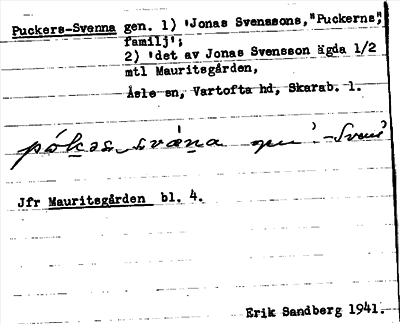 Puckers-Svenna gen. 1) 'Jonas Svenssons,"Puckerns",
familj';
2) 'det av Jonas Svensson ägda 1/2
mtl Mauritsgården,
Åsle sn, Vartofta hd, Skarab. l.
Jfr Mauritsgården bl. 4.
Erik Sandberg 1941.